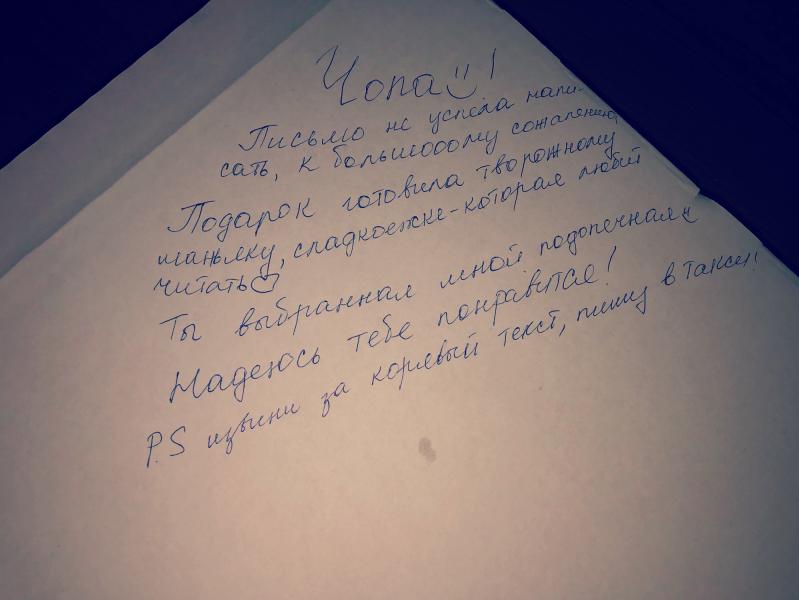 Чопа!
Письмо не успела напи-
сать, к большооому сожалению,
Подарок готовила творожному
маньяку, сладкоежке-которая любит
читать♡
Ты выбранная мной подопечная
Надеюсь тебе понравится!
P.S извини за корявый текст, пишу в такси!